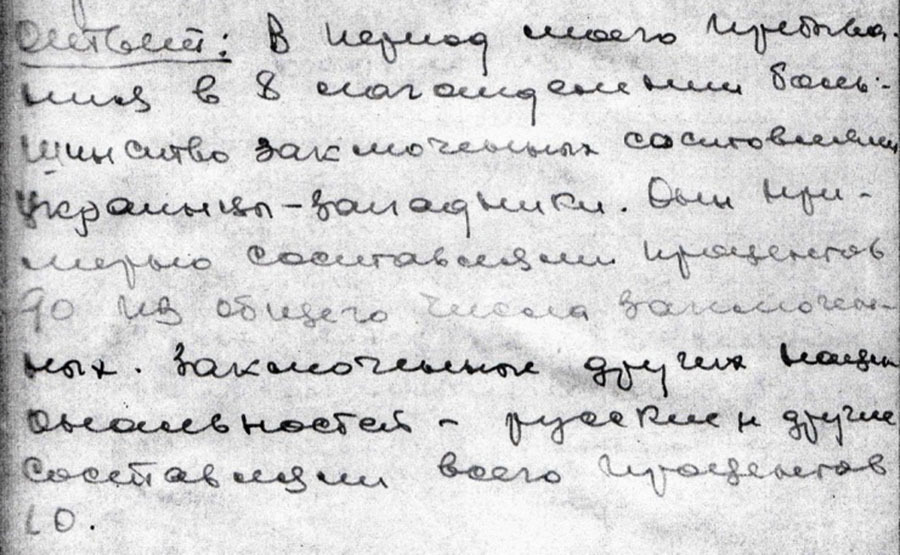 Ответ: В период моего пребыва-
ния в 8 лаготделении боль-
шинство заключенных состовляли
украинцы-западники. Они при-
мерно составляли процентов
90 из общего числа заключен-
ных. Заключенные других наци
ональностей - русские и другие
составляли всего процентов
10.